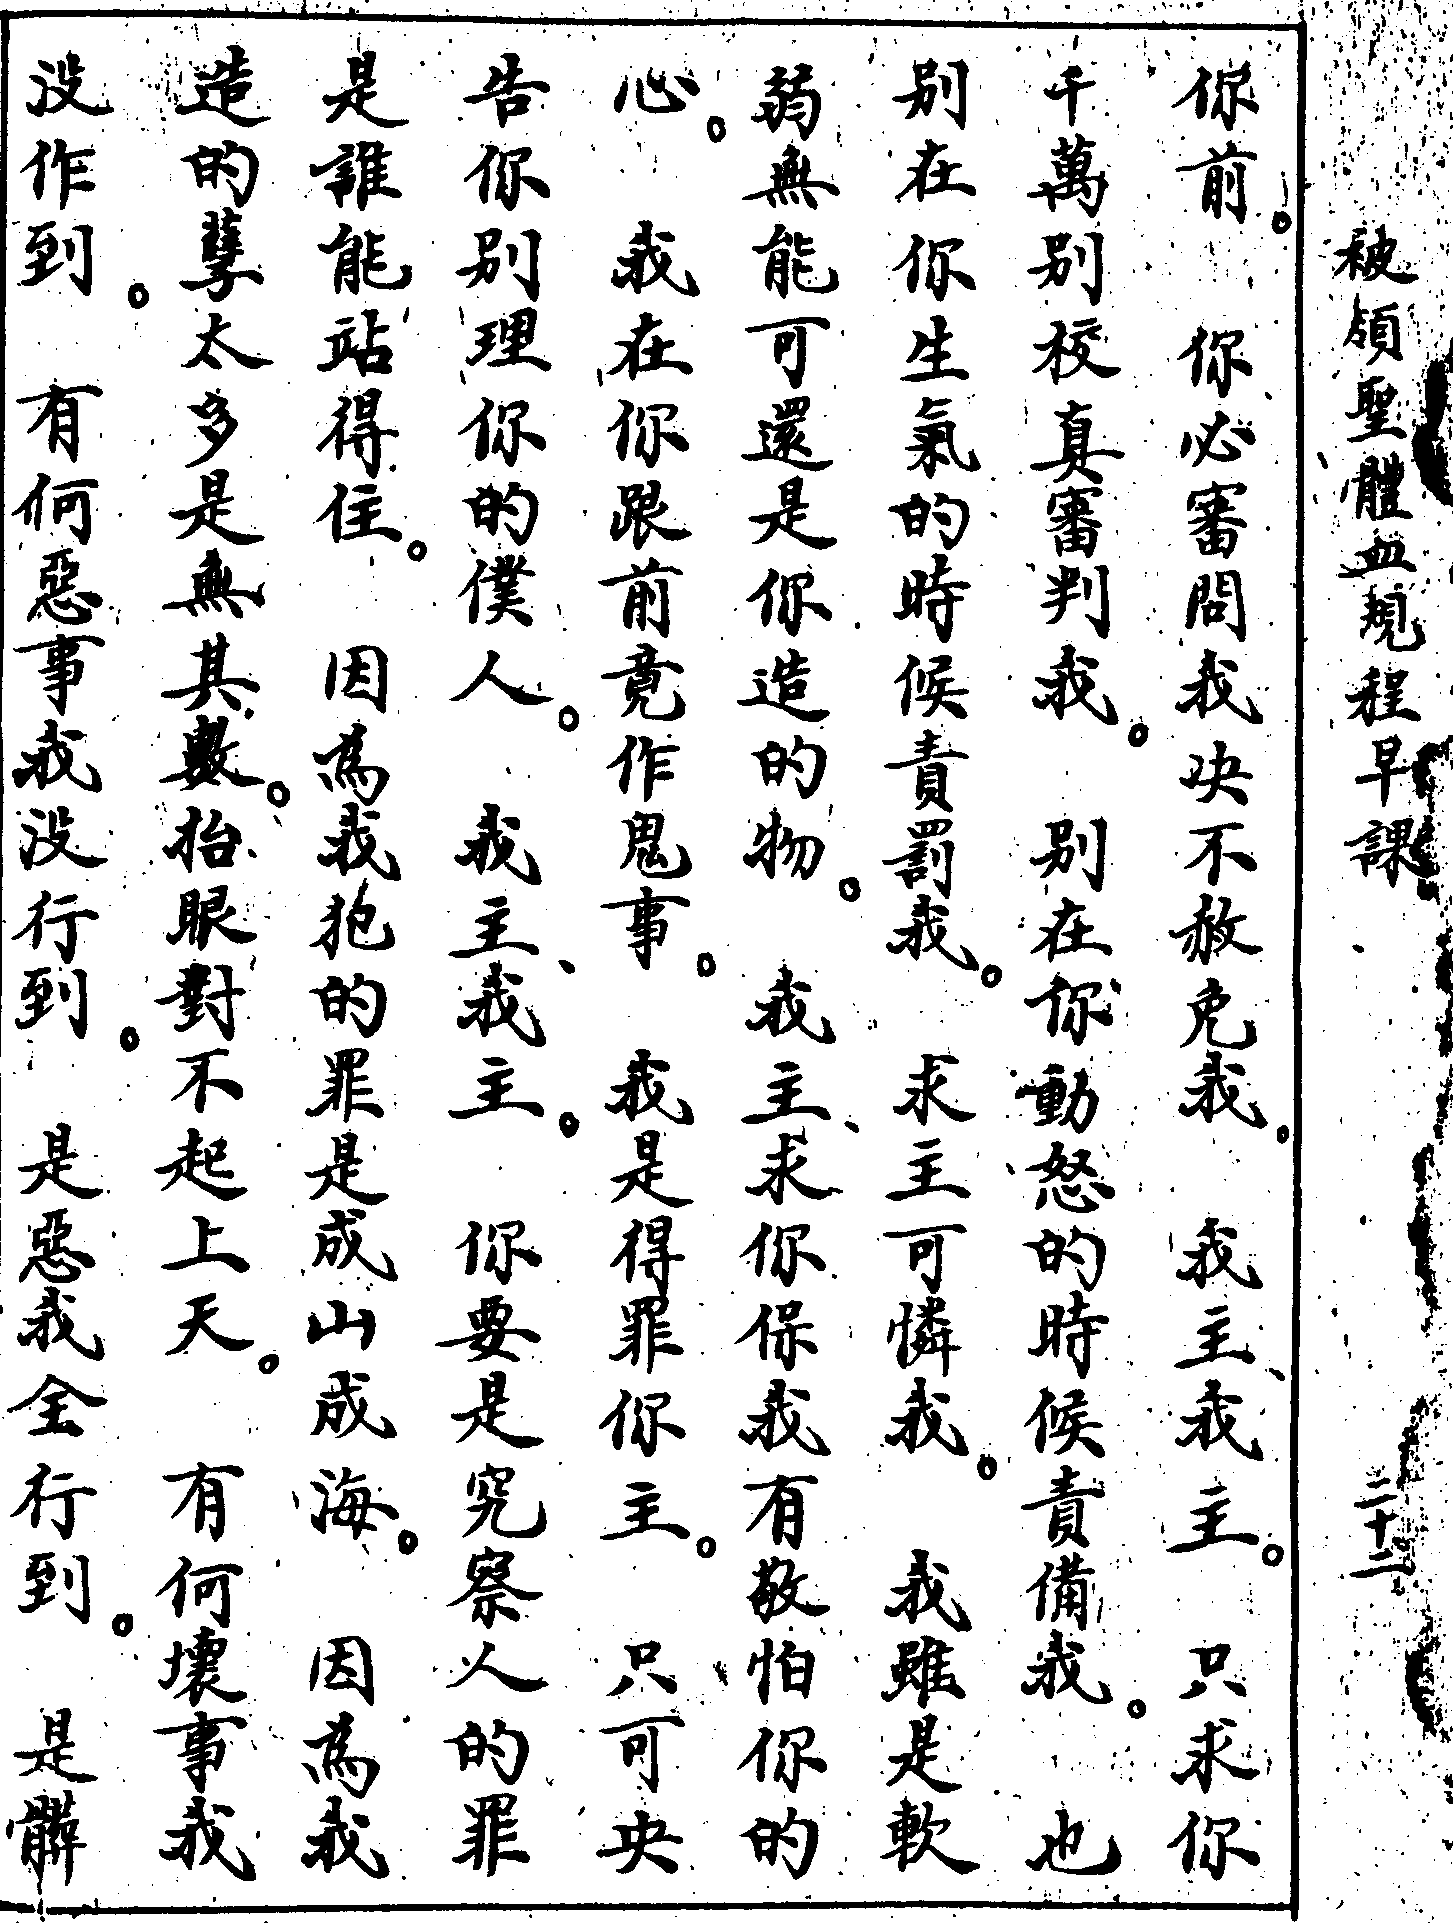 被領聖體血規程早課 二十二
你前。 你必審問我决不赦免我。 我主、我主。 只求你
千萬别校真審判我。 别在你動怒的時候責備我。 也
别在你生氣的時候責罰我。 求主可憐我。 我雖是軟
弱無能可還是你造的物。 我主、求你保我有敬怕你的
心。 我在你跟前竟作鬼事。 我是得罪你主。 只可央
告你别理你的僕人。 我主、我主。 你要是究察人的罪
是誰能站得住。 因為我犯的罪是成山成海。 因為我
造的孽太多是無其數。抬眼對不起上天。 有何壞事我
没作到。 有何惡事我没行到。 是惡我全行到。 是髒